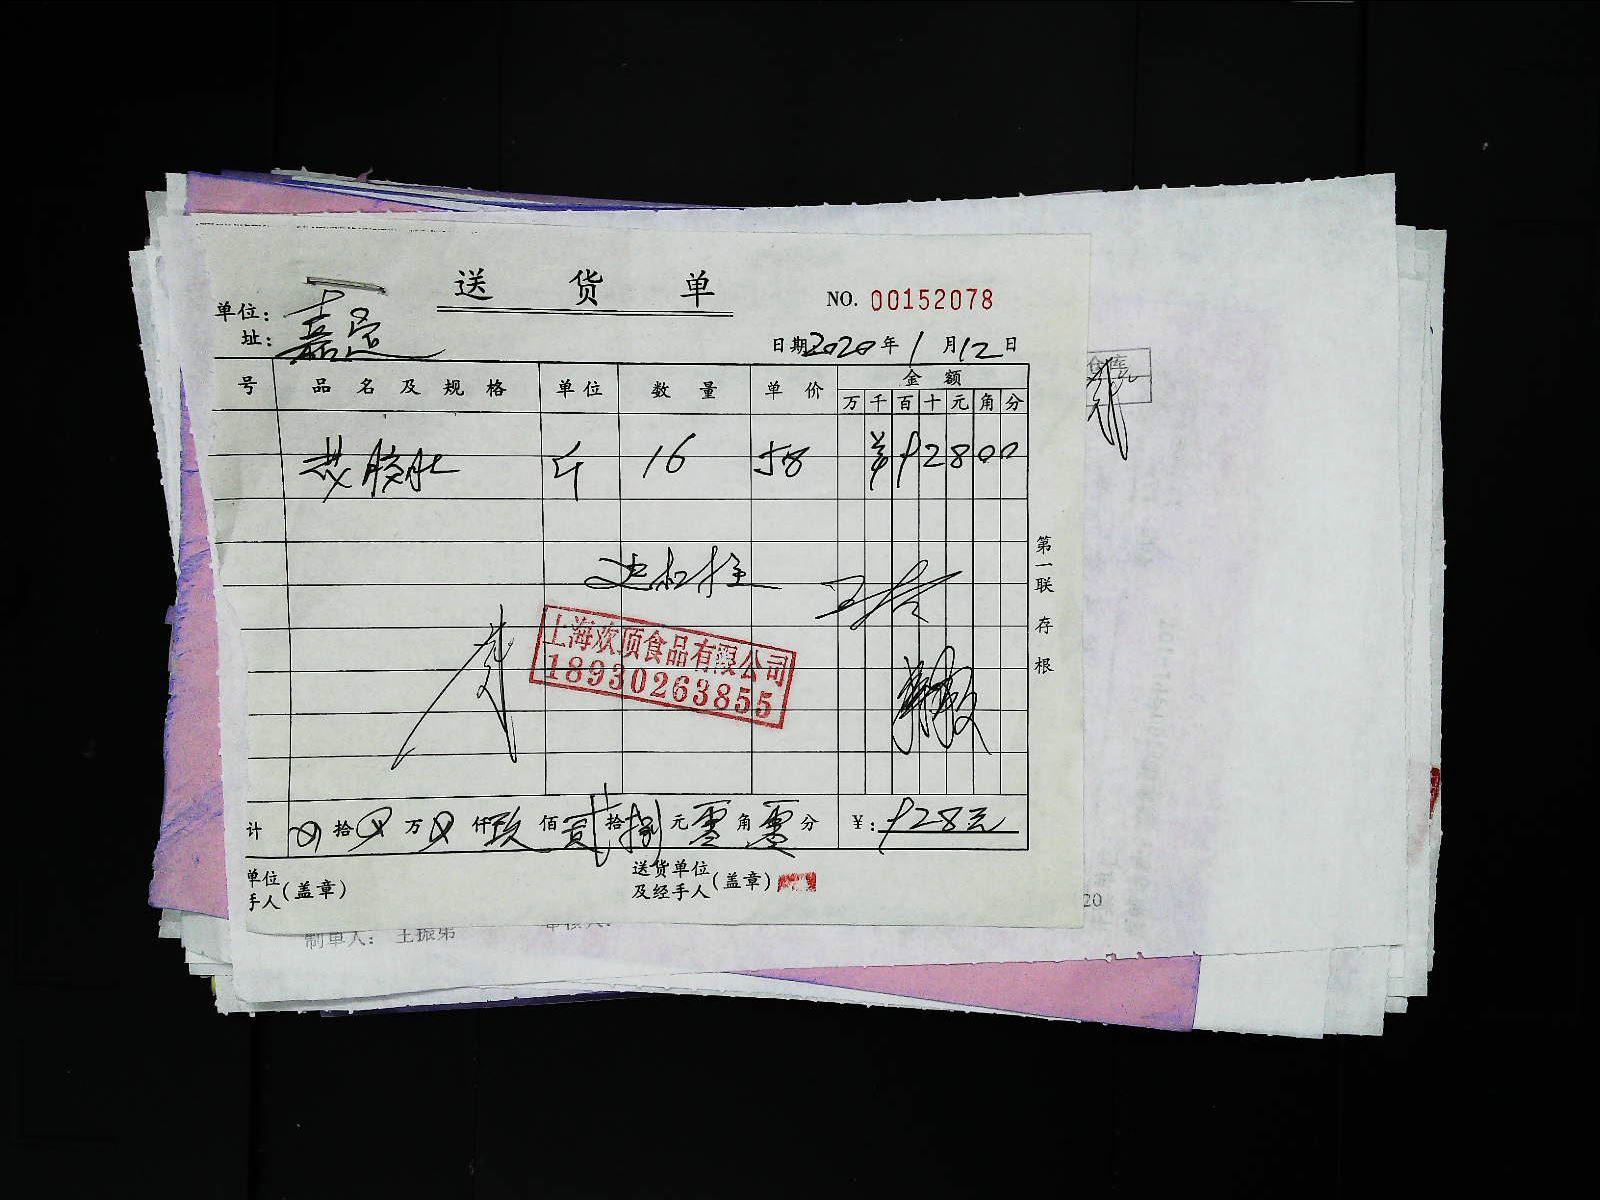 送货单
NO. 00152078
单位：
址：
嘉定
日期2020年1月12日
号 品名及规格 单位 数量 单价 金额
万千百十元角分
斤 16 58 ¥92800
第一联 存根
上海欢顶食品有限公司
18930263855
计 拾 万 仟玖佰贰拾捌元零角零分 ¥：928元
单位
手人(盖章)
送货单位
及经手人(盖章)
制单人： 王振第
20